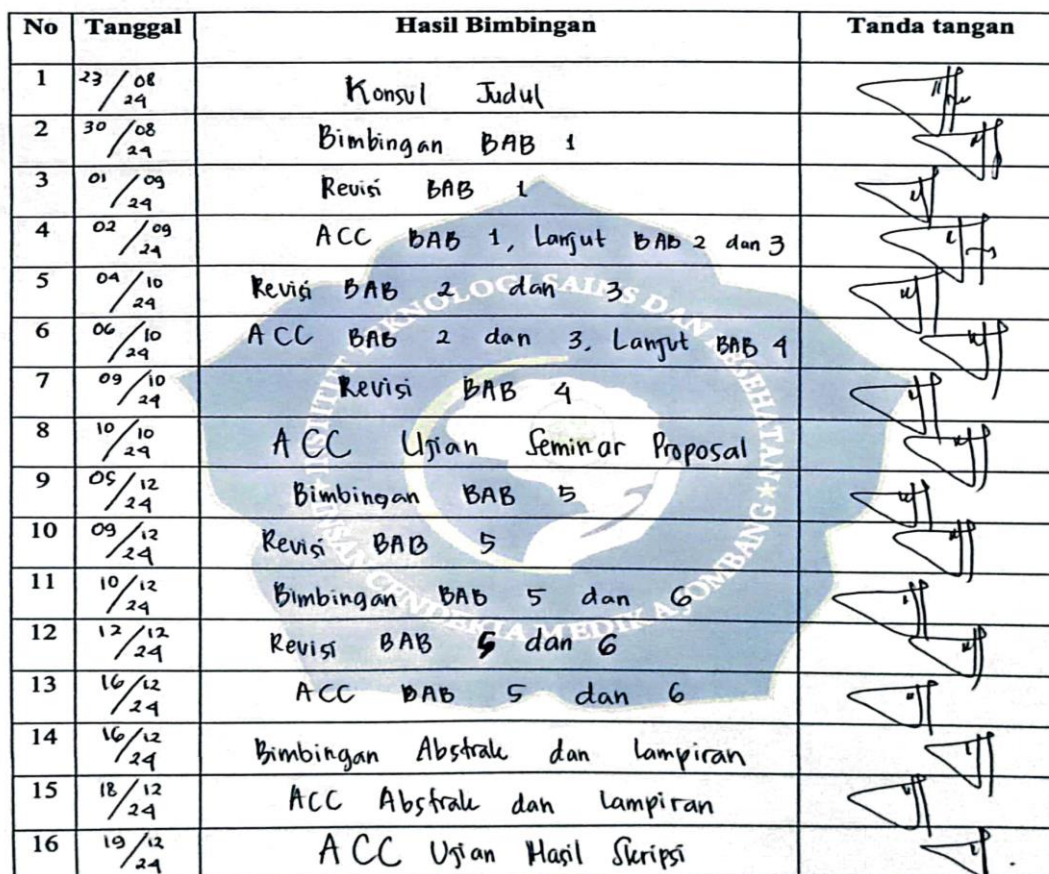 No Tanggal Hasil Bimbingan Tanda tangan
1 23/08 24 Konsul Judul
2 30/08 24 Bimbingan BAB 1
3 01/09 24 Revisi BAB 1
4 02/09 24 ACC BAB 1, Lanjut BAB 2 dan 3
5 04/10 24 Revisi BAB 2 dan 3
6 06/10 24 ACC BAB 2 dan 3, Lanjut BAB 4
7 09/10 24 Revisi BAB 4
8 10/10 24 ACC Ujian Seminar Proposal
9 05/12 24 Bimbingan BAB 5
10 09/12 24 Revisi BAB 5
11 10/12 24 Bimbingan BAB 5 dan 6
12 12/12 24 Revisi BAB 5 dan 6
13 16/12 24 ACC BAB 5 dan 6
14 16/12 24 Bimbingan Abstrak dan Lampiran
15 18/12 24 ACC Abstrak dan Lampiran
16 19/12 24 ACC Ujian Hasil Skripsi
INSTITUT TEKNOLOGI SAINS DAN KESEHATAN
INSAN CENDEKIA MEDIKA JOMBANG